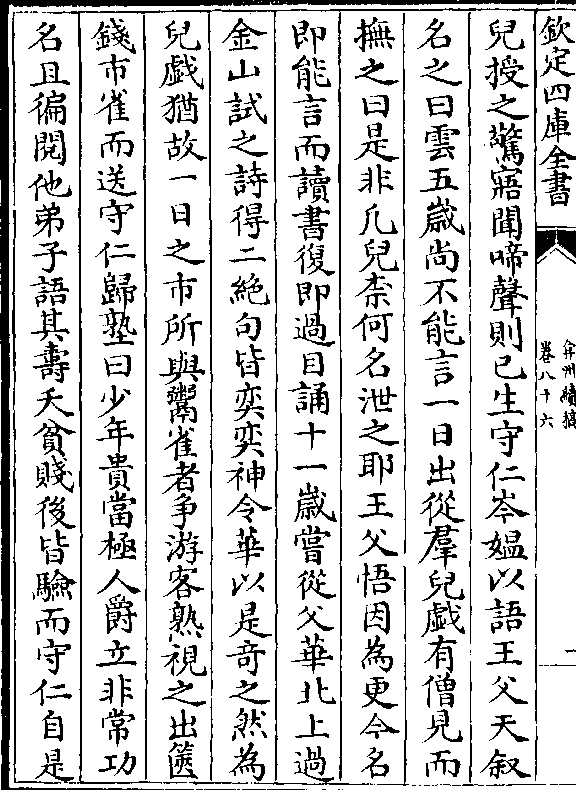 欽定四庫全書
弇州續稿
卷八十六
一
兒授之驚寤聞啼聲則已生守仁岑媼以語王父天叙
名之曰雲五歲尚不能言一日出從羣兒戲有僧見而
撫之曰是非凡兒柰何名泄之耶王父悟因為更今名
即能言而讀書復即過目誦十一歲嘗從父華北上過
金山試之詩得二絶句皆奕奕神令華以是竒之然為
兒戲猶故一日之市所與鬻雀者爭游客熟視之出篋
錢市雀而送守仁歸塾曰少年貴當極人爵立非常功
名且徧閱他弟子語其壽夭貧賤後皆驗而守仁自是